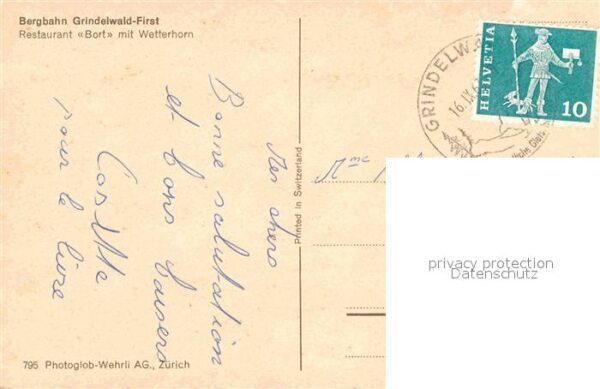 Bergbahn Grindelwald-First
Restaurant «Bort» mit Wetterhorn
Mes chers
Bonne salutation
et bons baisers
Cosette
pour le livre
Printed in Switzerland
795 Photoglob-Wehrli AG., Zürich
GRINDELW
16.IX.6
HELVETIA
10
Mme
privacy protection
Datenschutz